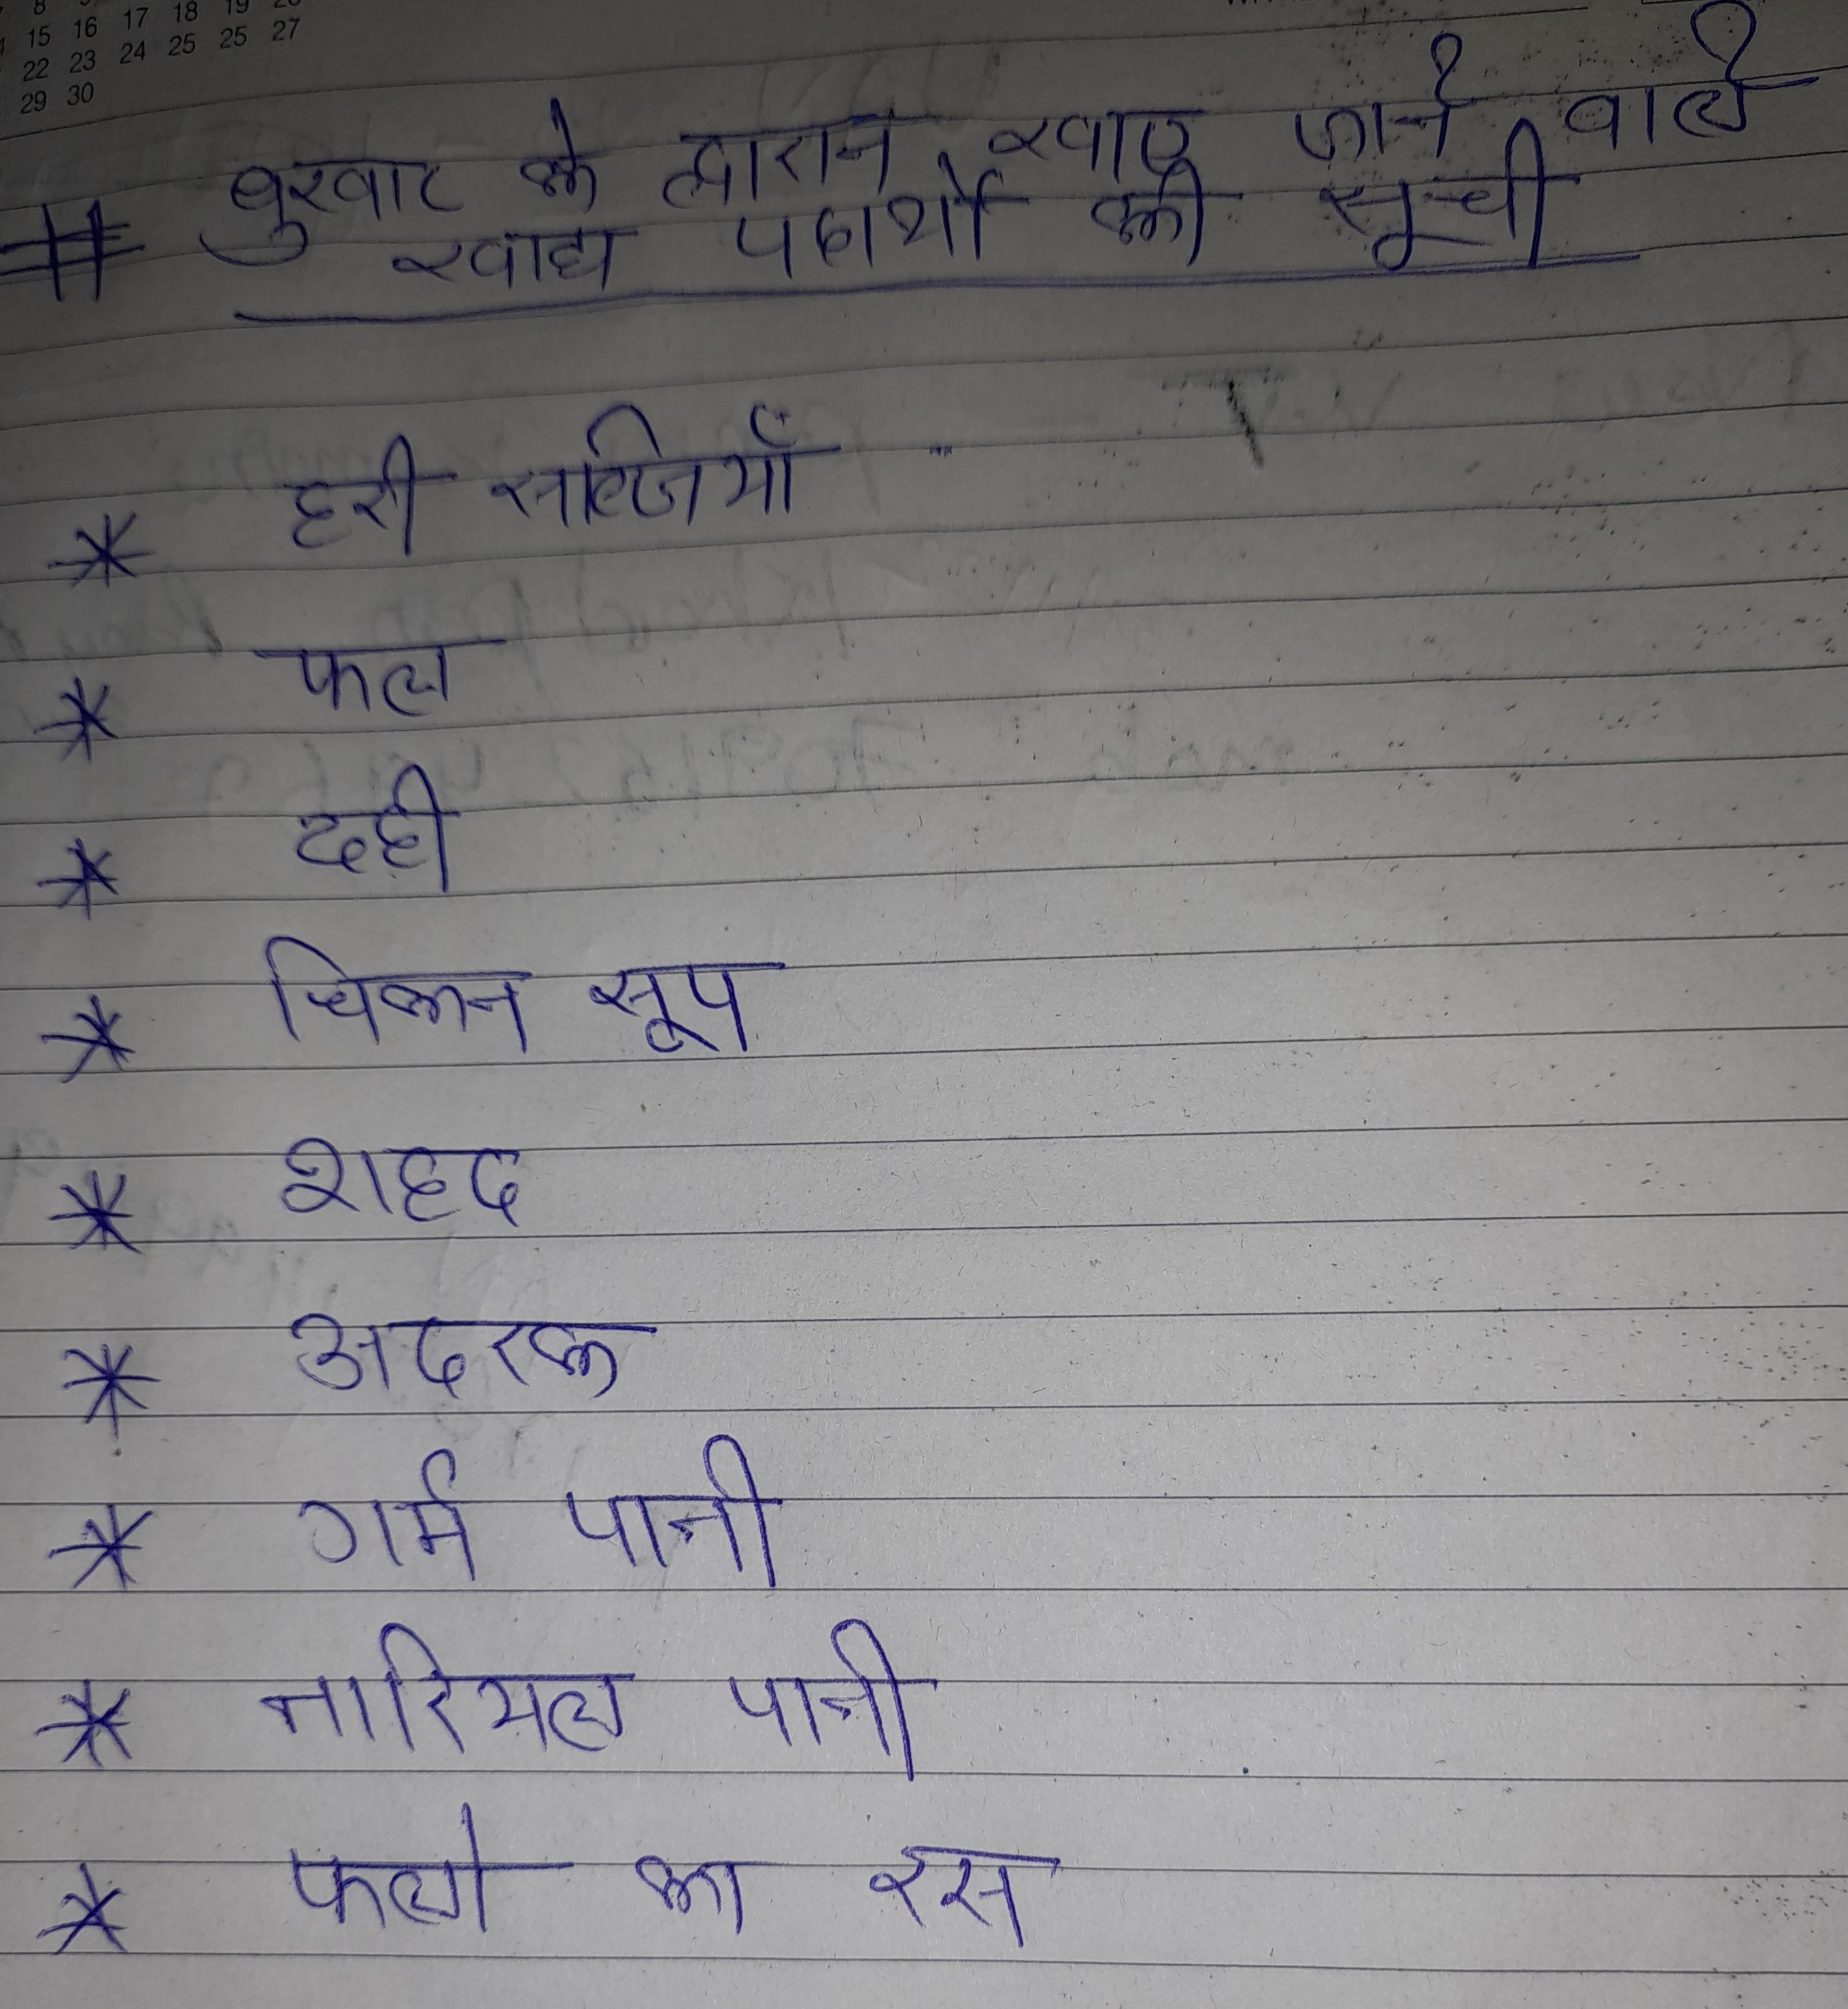 8
15 16 17 18 19
22 23 24 25 25 27
29 30
# बुखार के दौरान खाए जाने वाले
खाद्य पदार्थो की सूची
* हरी सब्जियाँ
* फल
* दही
* चिकन सूप
* शहद
* अदरक
* गर्म पानी
* नारियल पानी
* फलो का रस